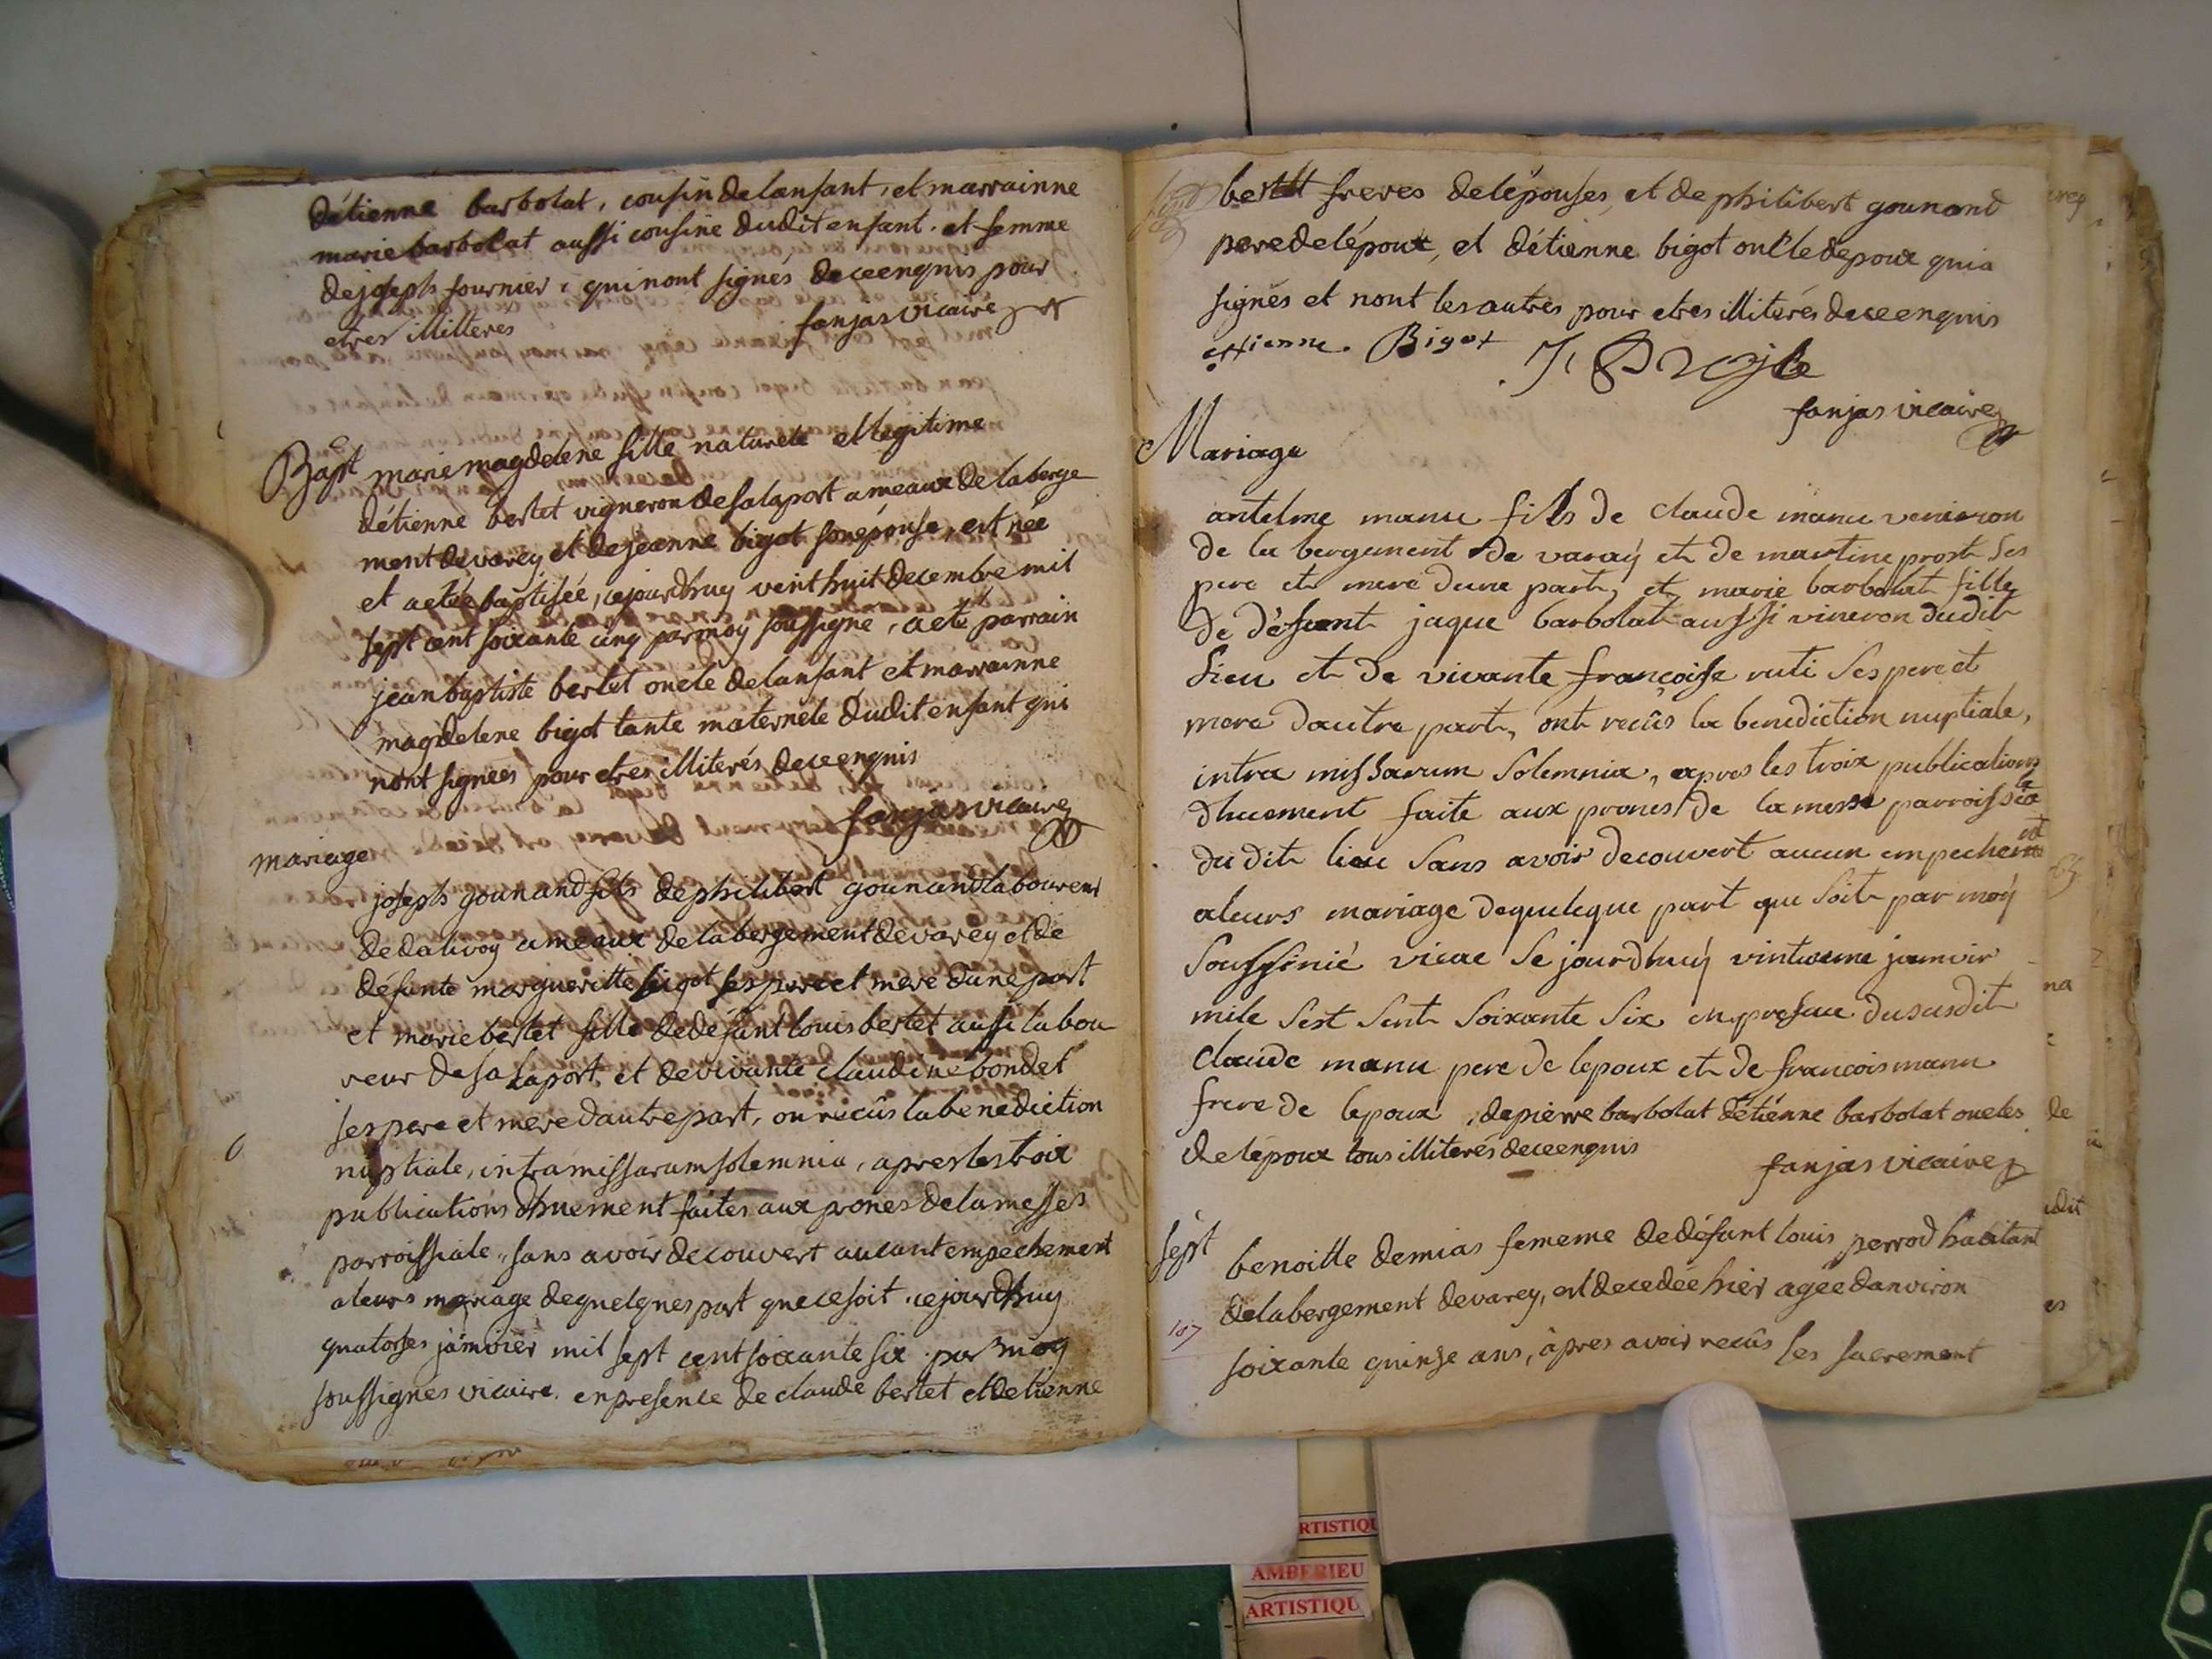 détienne barbolat, cousin delansant, et marrainne
marie barbolat aussi cousine dudit enfant. et femme
de joseph fournier, qui nont signés deceenquis pour
etres illitteres fanjas vicaire
Bapt marie magdelene fille naturele et legitime
détienne bertet vigneron desalaport ameaux de laberge
ment devarey et de jeanne bigot son épouse, est née
et aetée baptisée, cejourdhuy veint huit decembre mil
sept cent soixante cinq par moy soussigne, aeté parrain
jean baptiste bertet oncle de lansant et marrainne
magdelene bigot tante maternele dudit enfant qui
nont signees pour etres illiterés deceenquis
fanjas vicaire
mariage
joseph gounand fils de philibert gounand laboureur
de dalivoy ameaux de labergement devarey et de
défunte margueritte bigot ses pere et mere dune part
et marie bertet fille de défunt louis bertet aussi labou
reur de salaport et de vivante claudine bondet
ses pere et mere dautre part, on recûs la benediction
nuptiale, intra missarum solemnia, apres les troix
publications dhuement faites aux prones de la messes
parroissiale, sans avoir decouvert aucunt empechement
aleurs mariage dequelques part que ce soit, cejourdhuy
quatorses janvier mil sept cent soixante six par moy
soussignes vicaire. en presence de claude bertet et detienne
bertet freres delépouses, et de philibert gounand
pere delépoux, et détienne bigot oncle depoux qui a
signés et nont les autres pour etres illiterés deceenquis
ettienne. Bigot
fanjas vicaire
Mariage
antelme manu fils de claude manu veniron
de la bergement de varaÿ et de martine prost ses
pere et mere dune part, et marie barbolat fille
de défunt jaque barbolat aussi vineron dudit
lieu et de vivante françoise ruti ses pere et
mere dautre part, ont recûs la benediction nuptiale,
intra missarum solemnia, apres les troix publications
dhuement faite aux prones de la messe parroissia le
du dit lieu sans avoir decouvert aucun empechem ent
aleurs mariage dequelque part que soit par moÿ
soussinié vicae se jourdhuÿ vintweme janvir
mile sest sent soixante six en presace du susdit
claude manu pere de lepoux et de francois manu
frere de lepoux, de pierre barbolat détiénne barbolat oncles
de lépoux tous illiterés deceenquis
fanjas vicaire
sept benoitte demias fememe de défunt louis perrod habitant
de labergement devarey, est decedée hier agée danviron
107
soixante quinse ans, âpres avoir recûs les sacrement
RTISTIQU
AMBERIEU
ARTISTIQU